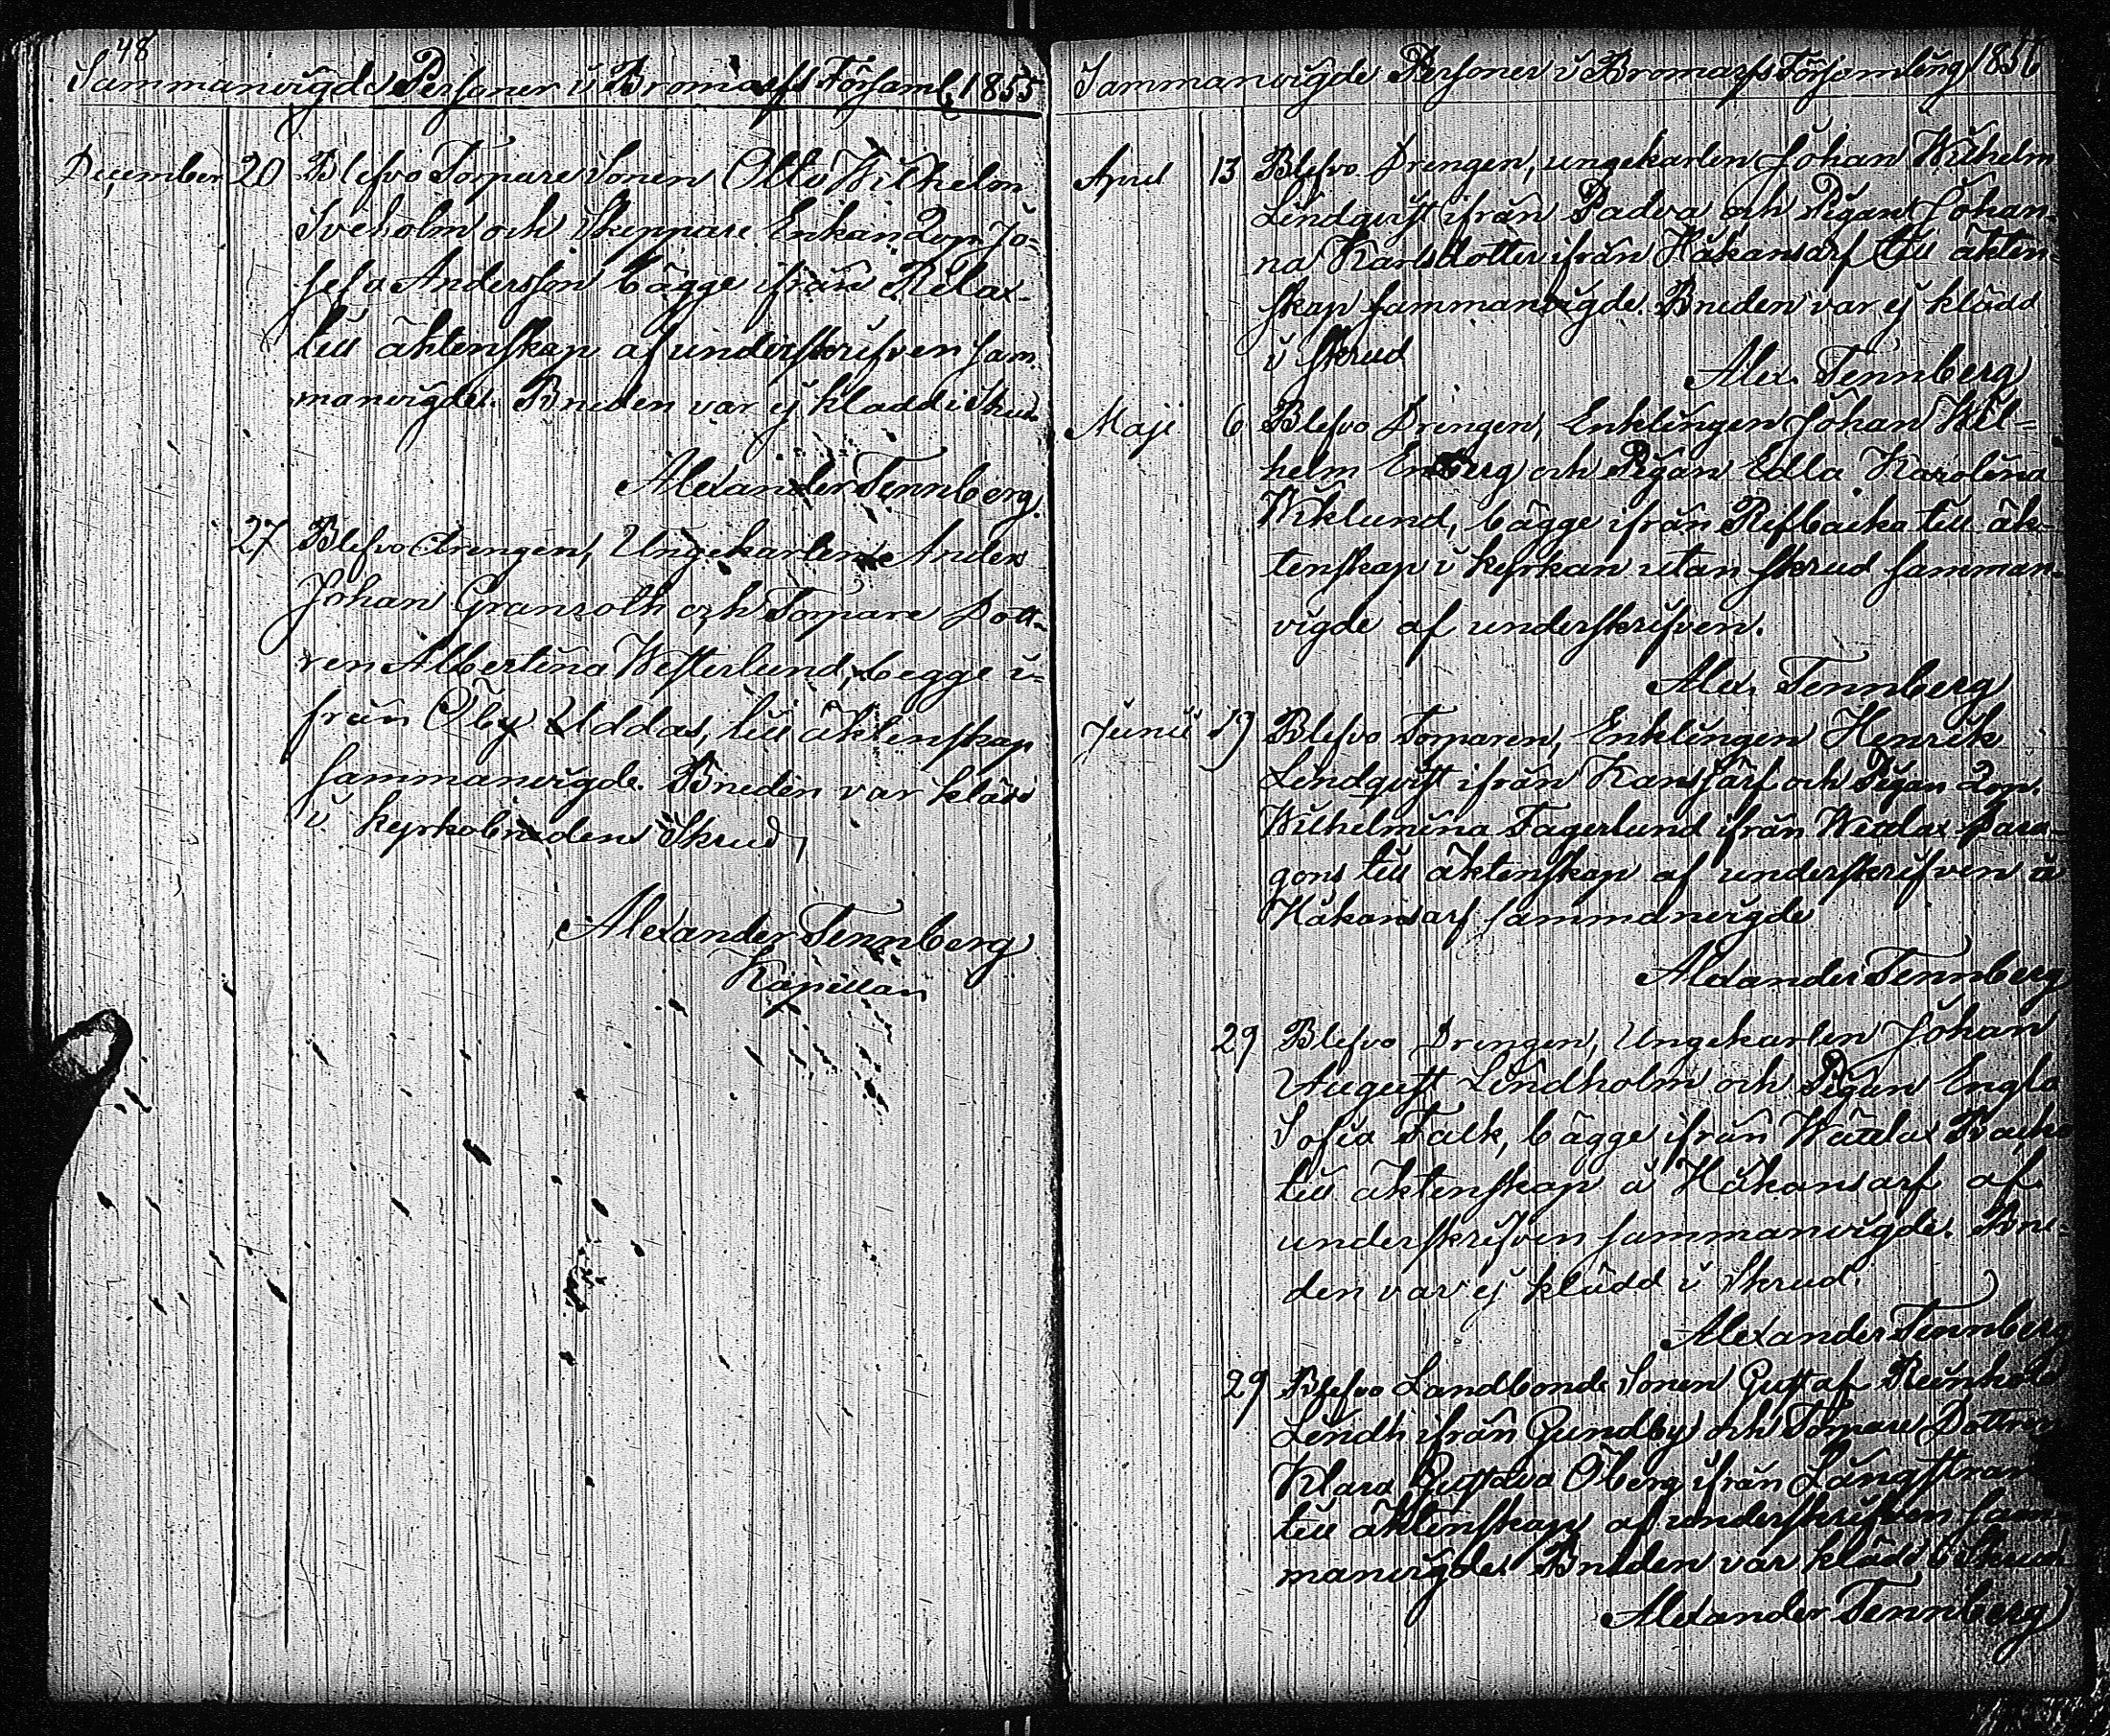 48
Sammanvigde Personer i Bromarfs Församl. 1855
December 20 Blefvo Torpare Sonen Otto Wilhelm
Sveholm och Skeppare Enkan Lov. Jo-
sefa Andersson bägge ifrån Rilax
till äktenskap af underskrifven sam-
manvigde. Bruden var ej klädd i Skrud
Alexander Tennberg.
27 Blefvo Drengen, Ungekarlen Anders
Johan Granroth och Torpare Dott-
ren Albertina Westerlund, begge i-
från Öby Uddas, till äktenskap
sammanvigde. Bruden var klädd
i kyrkobrudens Skrud,
Alexander Tennberg
Kapellan
Sammanvigde Personer i Bromarfs Församling 1856
April 13 Blefvo Drengen, ungekarlen Johan Wilhelm
Lindqvist ifrån Padva och Pigan Johan-
na Karlsdotter ifrån Håkansarf till äkten-
skap sammanvigde. Bruden var ej klädd
i skrud
Alex. Tennberg
Maji 6 Blefvo Drengen, Enklingen Johan Wil-
helm och Pigan Edla Karolina
Wiklund, bägge ifrån Refbacka till äk-
tenskap i kyrkan utan skrud samman-
vigde af underskrifven.
Alex. Tennberg
Junii 19 Blefvo Torparen, Enklingen Henrik
Lindqvist ifrån Kansjärf och Pigan Lov.
Wilhelmina Fagerlund ifrån Wättlax Para-
gons till äktenskap af underskrifven å
Håkansarf sammanvigde
Alexander Tennberg
29 Blefvo Drengen, Ungekarlen Johan
August Lindholm och Pigan Engla
Sofia Falk, bägge ifrån Wättlax Backa
till äktenskap å Håkansarf af
underskrifven sammanvigde. Bru-
den var ej klädd i Skrud.
Alexander Tennberg
29 Blefvo Landbonde Sonen Gustaf Reinhold
Lindh ifrån Gundby och Torpare Dottren
Klara Gustava Öberg ifrån Långstrand
till äktenskap af underskrifven sam-
manvigde. Bruden var klädd i Skrud
Alexander Tennberg